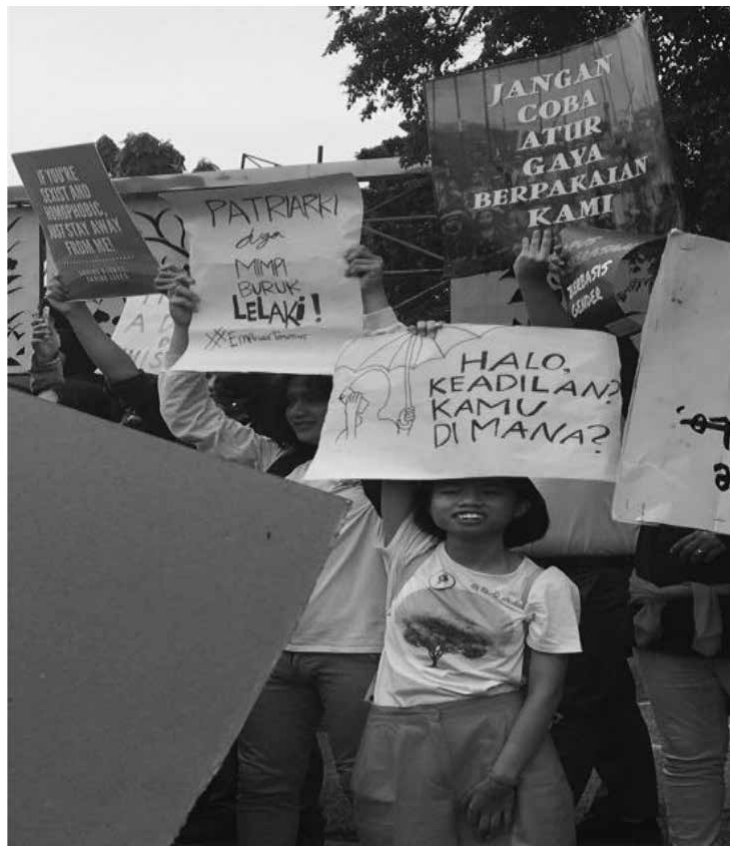 IF YOU'RE
SEXIST AND
HOMOPHOBIC,
JUST STAY AWAY
FROM ME!
PATRIARKI
dgn
MIMPI
BURUK
LELAKI!
JANGAN
COBA
ATUR
GAYA
BERPAKAIAN
KAMI
BERBASIS
GENDER
HALO,
KEADILAN?
KAMU
DI MANA?